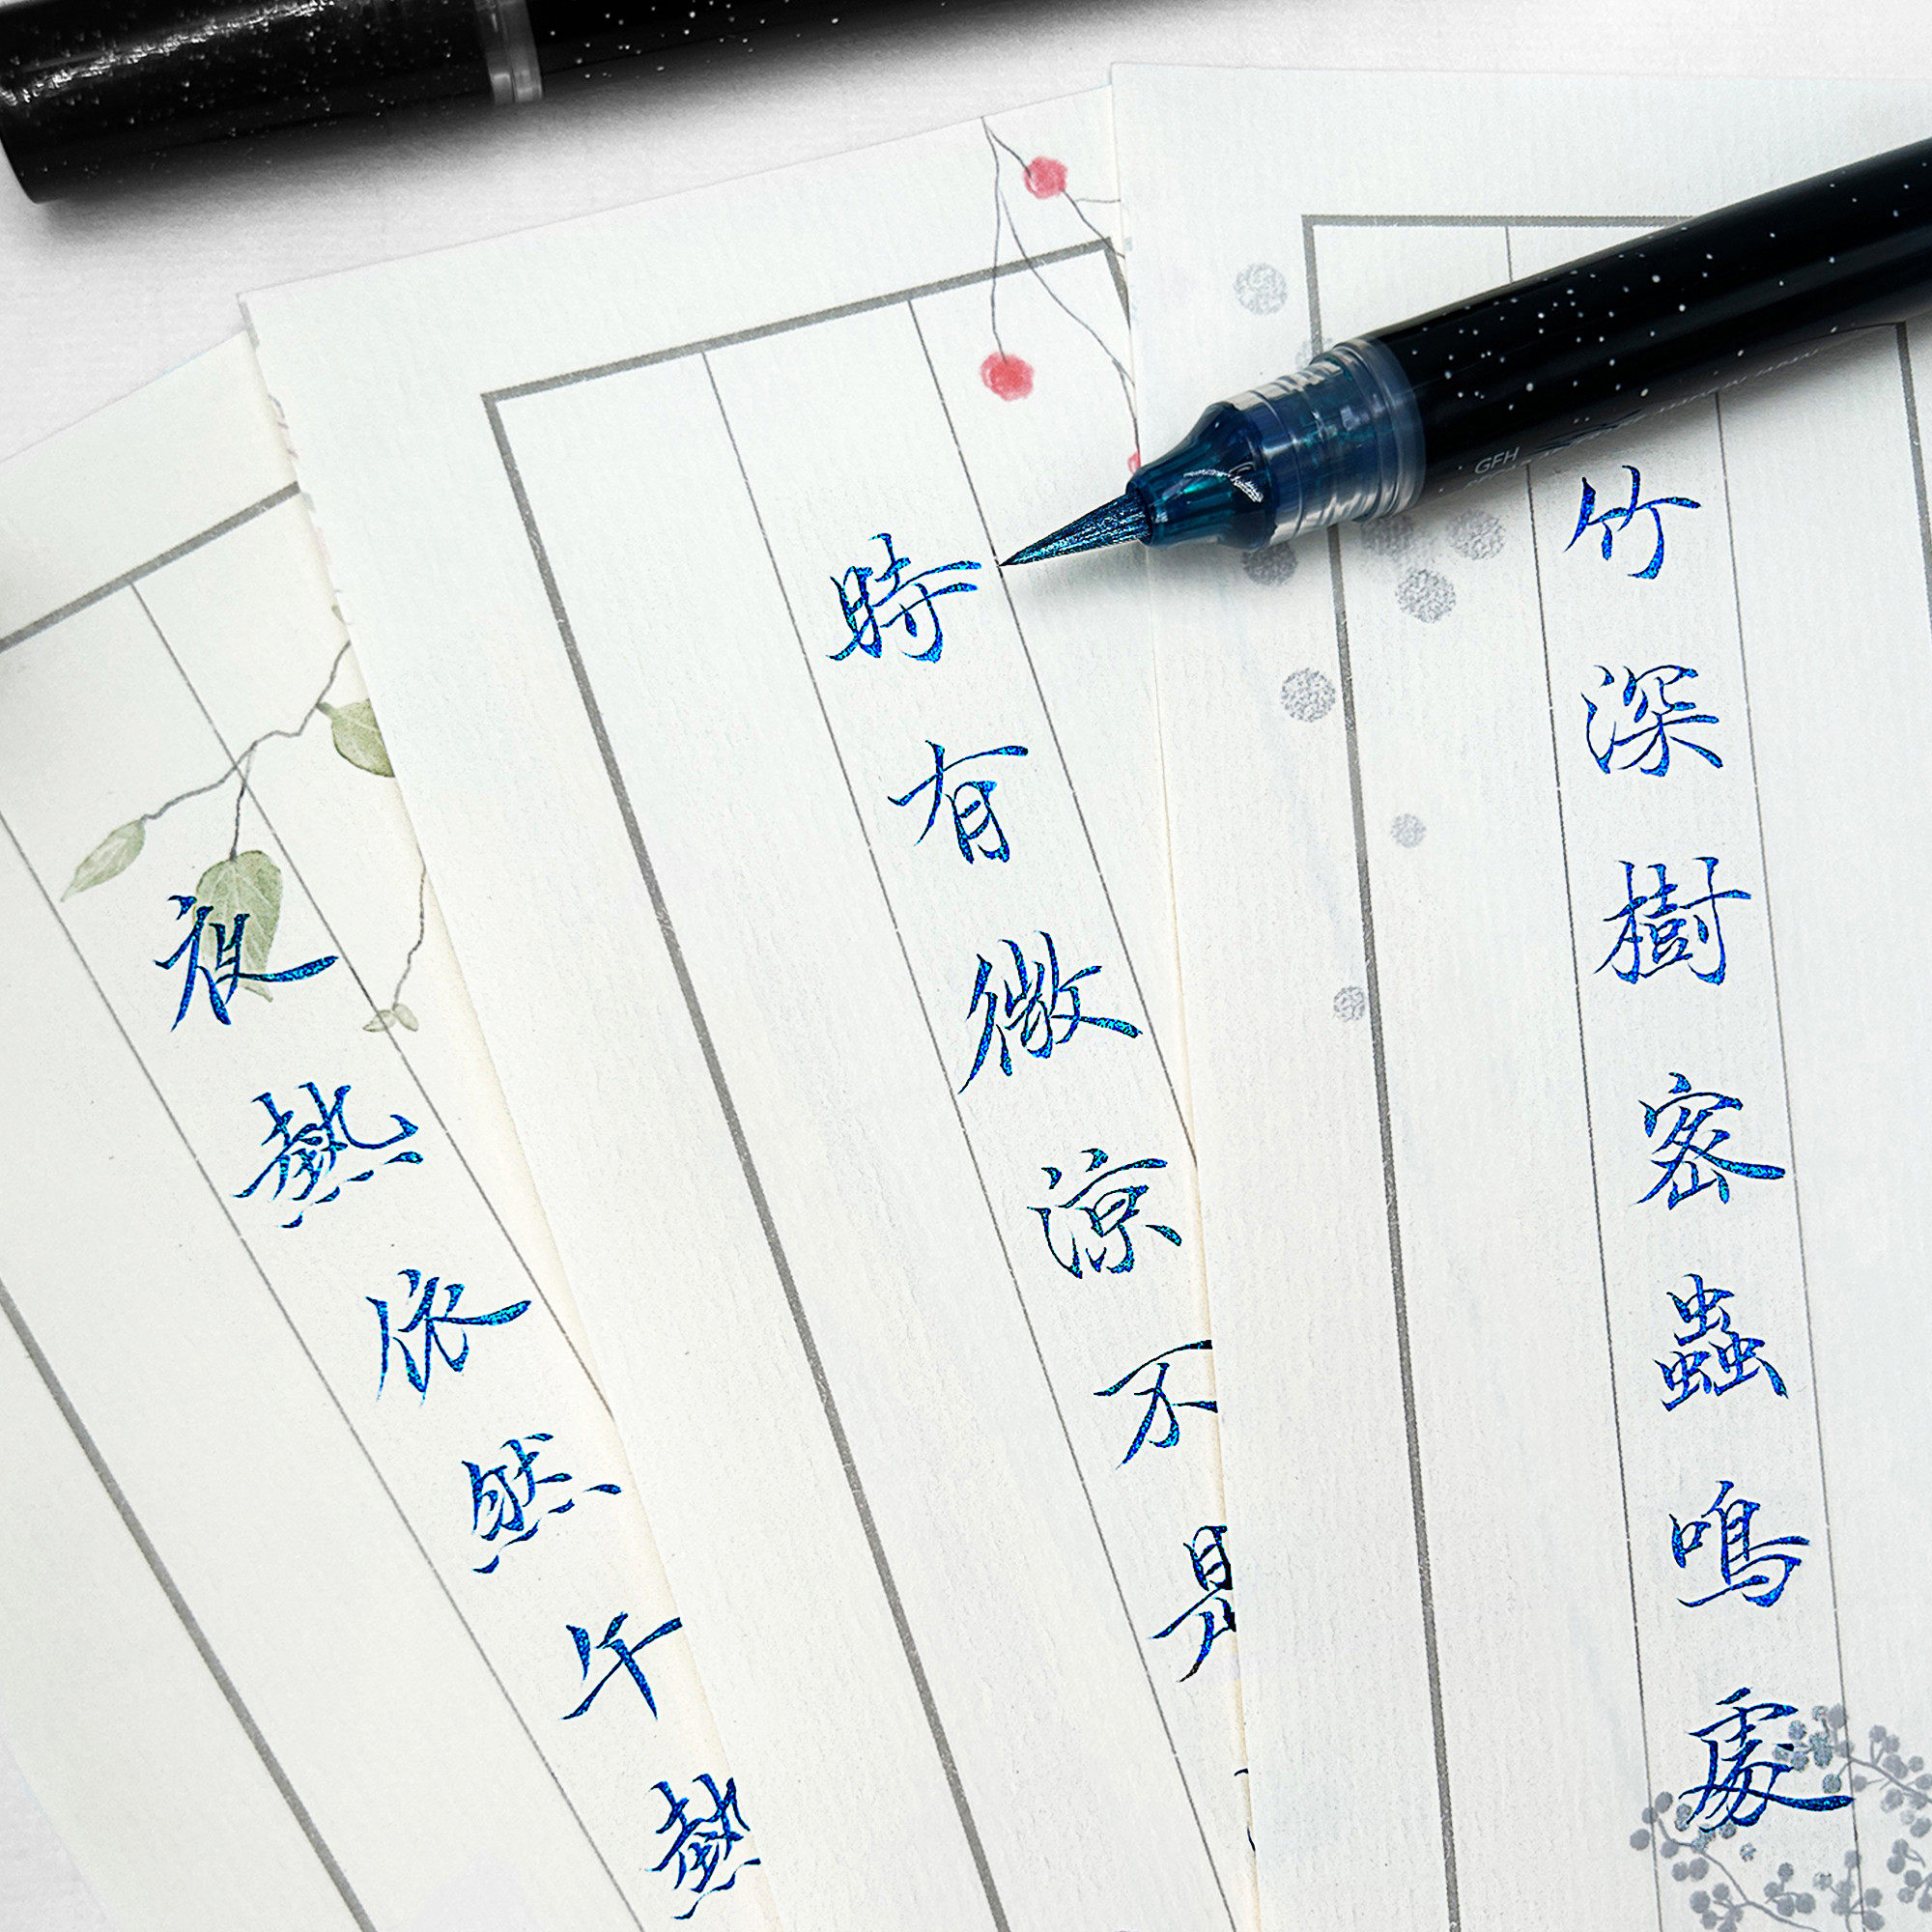 竹深樹密蟲鳴處
時有微涼不是
夜熱依然午熱
GFH